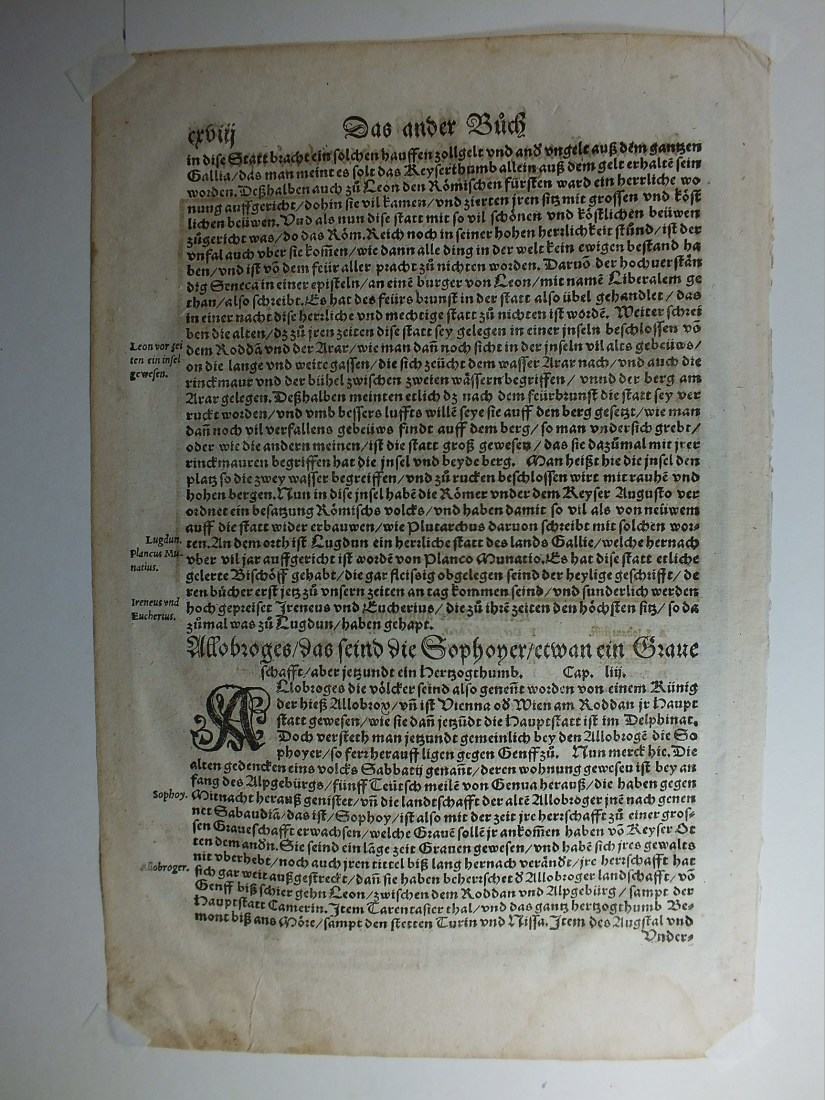 cxviij
Das ander Bůch
in dise Statt bracht ein solchen hauffen zollgelt vnd and vngelt auß dem gantzen
Gallia/das man meint es solt das Keyserthumb allein auß dem gelt erhaltē sein
worden. Deßhalben auch zů Leon den Römischen fürsten ward ein herrliche wo
nung auffgericht/dohin sie vil kamen/vnd zierten jren sitz mit grossen vnd köst
lichen beüwen. Vnd als nun dise statt mit so vil schönen vnd köstlichen beüwen
zůgericht was/do das Röm. Reich noch in seiner hohen herrlichkeit stůnd/ist der
vnfal auch vber sie kom̄en/wie dann alle ding in der welt kein ewigen bestand ha
ben/vnd ist vō dem feür aller pracht zů nichten worden. Daruō der hochuerstān
dig Seneca in einer episteln/an einē burger von Leon/mit namē Liberalem ge
than/also schreibt. Es hat des feürs brunst in der statt also übel gehandlet/das
in einer nacht dise herrliche vnd mechtige statt zů nichten ist wordē. Weiter schrei
ben die alten/dz zů jren zeiten dise statt sey gelegen in einer jnseln beschlossen vō
Leon vor zei
ten ein insel
gewesen.
dem Roddā vnd der Arar/wie man dañ noch sicht in der jnseln vil alts gebeüws/
on die lange vnd weite gassen/die sich zeücht dem wasser Arar nach/vnd auch die
rinckmaur vnd der bühel zwischen zweien wässern begriffen/vnnd der berg am
Arar gelegen. Deßhalben meinten etlich dz nach dem feürbrunst die statt sey ver
ruckt worden/vnd vmb bessers luffts willē seye sie auff den berg gesetzt/wie man
dañ noch vil verfallens gebeüws findt auff dem berg/so man vndersich grebt/
oder wie die andern meinen/ist die statt groß gewesen/das sie dazůmal mit jrer
rinckmauren begriffen hat die jnsel vnd beyde berg. Man heißt hie die jnsel den
platz so die zwey wasser begreiffen/vnd zů rucken beschlossen wirt mit rauhē vnd
hohen bergen. Nun in dise jnsel habē die Römer vnder dem Keyser Augusto ver
ordnet ein besatzung Römischs volcks/vnd haben damit so vil als von neüwem
auff die statt wider erbauwen/wie Plutarchus daruon schreibt mit solchen wor-
Lugdun.
Plancus Mu-
natius.
ten. An dem orth ist Lugdun ein herrliche statt des lands Gallie/welche hernach
vber vil jar auffgericht ist wordē von Planco Munatio. Es hat dise statt etliche
gelerte Bischöff gehabt/die gar fleissig obgelegen seind der heylige geschrifft/de
ren bücher erst jetz zů vnsern zeiten an tag kommen seind/vnd sunderlich werden
Ireneus vnd
Eucherius.
hoch gepreiset Ireneus vnd Eucherius/die zů ihrē zeiten den höchsten sitz/so da
zůmal was zů Lugdun/haben gehapt.
Allobroges/das seind die Sophoyer/etwan ein Graue
schafft/aber jetzundt ein Hertzogthumb. Cap. liij.
ALlobroges die völcker seind also geneñt worden von einem Künig
der hieß Allobrox/vñ ist Vienna od Wien am Roddan jr Haupt
statt gewesen/wie sie dañ jetzūdt die Hauptstatt ist im Delphinat.
Doch versteth man jetzundt gemeinlich bey den Allobrogē die So
phoyer/so ferr herauff ligen gegen Genff zů. Nun merck hie. Die
alten gedencken eins volcks Sabbatij genañt/deren wohnung gewesen ist bey an
fang des Alpgebürgs/fünff Teütsch meilē von Genua herauß/die haben gegen
Sophoy.
Mitnacht herauß genistet/vñ die landtschafft der altē Allobroger jnē nach genen
net Sabaudiā/das ist/Sophoy/ist also mit der zeit jre herrschafft zů einer gros-
sen Graueschafft erwachsen/welche Grauē sollē jr ankom̄en haben vō Keyser Ot
ten dem andn. Sie seind ein lāge zeit Grauen gewesen/vnd habē sich jres gewalts
nit vberhebt/noch auch jren tittel biß lang hernach verāndt/jre herrschafft hat
Allobroger.
sich gar weit außgestreckt/dañ sie haben beherrschet d Allobroger landschafft/vō
Genff biß schier gehn Leon/zwischen dem Roddan vnd Alpgebürg/sampt der
Hauptstatt Camerin. Item Tarentasier thal/vnd das gantz hertzogthumb Be-
mont biß ans Möre/sampt den stetten Turin vnd Nissa. Item des Augstal vnd
Vnder-